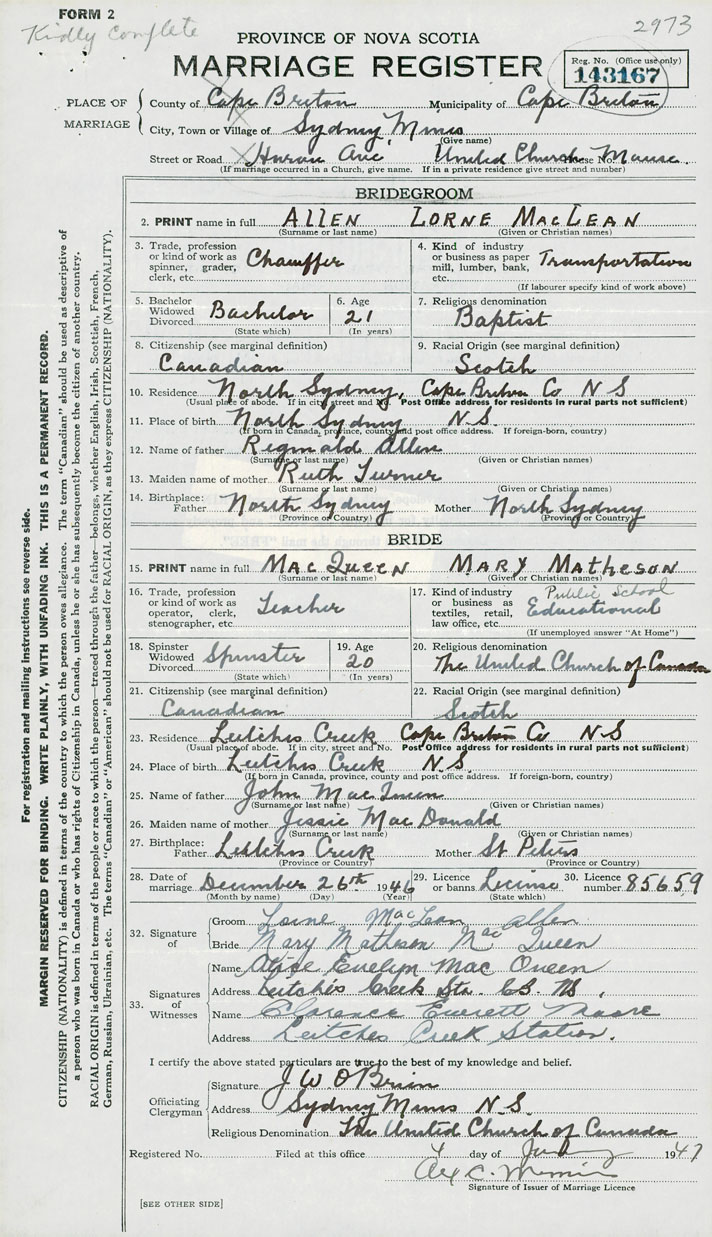 FORM 2
Kidly complete
2973
PROVINCE OF NOVA SCOTIA
MARRIAGE REGISTER
Reg. No. (Office use only)
143167
PLACE OF MARRIAGE
County of Cape Breton Municipality of Cape Breton
City, Town or Village of Sydney Mines
(Give name)
Street or Road Huron Ave United Church Manse
(If marriage occurred in a Church, give name. If in a private residence give street and number)
BRIDEGROOM
2. PRINT name in full ALLEN LORNE MACLEAN
(Surname or last name) (Given or Christian names)
3. Trade, profession or kind of work as spinner, grader, clerk, etc. Chauffer
4. Kind of industry or business as paper mill, lumber, bank, etc. Transportation
(If labourer specify kind of work above)
5. Bachelor Widowed Divorced Bachelor
(State which)
6. Age 21
(In years)
7. Religious denomination
Baptist
8. Citizenship (see marginal definition)
Canadian
9. Racial Origin (see marginal definition)
Scotch
10. Residence North Sydney, Cape Breton Co N S
(Usual place of abode. If in city, street and No. Post Office address for residents in rural parts not sufficient)
11. Place of birth North Sydney N.S.
(If born in Canada, province, county and post office address. If foreign-born, country)
12. Name of father Reginald Allen
(Surname or last name) (Given or Christian names)
13. Maiden name of mother Ruth Turner
(Surname or last name) (Given or Christian names)
14. Birthplace: Father North Sydney Mother North Sydney
(Province or Country) (Province or Country)
BRIDE
15. PRINT name in full MACQUEEN MARY MATHESON
(Surname or last name) (Given or Christian names)
16. Trade, profession or kind of work as operator, clerk, stenographer, etc. Teacher
17. Kind of industry or business as textiles, retail, law office, etc. Public School Educational
(If unemployed answer "At Home")
18. Spinster Widowed Divorced Spinster
(State which)
19. Age 20
(In years)
20. Religious denomination
The United Church of Canada
21. Citizenship (see marginal definition)
Canadian
22. Racial Origin (see marginal definition)
Scotch
23. Residence Leitches Creek Cape Breton Co N S
(Usual place of abode. If in city, street and No. Post Office address for residents in rural parts not sufficient)
24. Place of birth Leitches Creek N.S.
(If born in Canada, province, county and post office address. If foreign-born, country)
25. Name of father John MacQueen
(Surname or last name) (Given or Christian names)
26. Maiden name of mother Jessie MacDonald
(Surname or last name) (Given or Christian names)
27. Birthplace: Father Leitches Creek Mother St Peters
(Province or Country) (Province or Country)
28. Date of marriage December 26th 1946
(Month by name) (Day) (Year)
29. Licence or banns License
(State which)
30. Licence number 85659
32. Signature of
Groom Lorne MacLean Allen
Bride Mary Matheson MacQueen
33. Signatures of Witnesses
Name Alice Evelyn MacQueen
Address Leitches Creek Stn. CB. NS.
Name Clarence Everett Moore
Address Leitches Creek Station.
I certify the above stated particulars are true to the best of my knowledge and belief.
Officiating Clergyman
Signature J W O'Brien
Address Sydney Mines N.S.
Religious Denomination The United Church of Canada
Registered No. Filed at this office 4 day of 1947
Alex C.
Signature of Issuer of Marriage Licence
[SEE OTHER SIDE]
For registration and mailing instructions see reverse side.
MARGIN RESERVED FOR BINDING. WRITE PLAINLY, WITH UNFADING INK. THIS IS A PERMANENT RECORD.
CITIZENSHIP (NATIONALITY) is defined in terms of the country to which the person owes allegiance. The term "Canadian" should be used as descriptive of
a person who was born in Canada or who has rights of Citizenship in Canada, unless he or she has subsequently become the citizen of another country.
RACIAL ORIGIN is defined in terms of the people or race to which the person—traced through the father—belongs, whether English, Irish, Scottish, French,
German, Russian, Ukrainian, etc. The terms "Canadian" or "American" should not be used for RACIAL ORIGIN, as they express CITIZENSHIP (NATIONALITY).